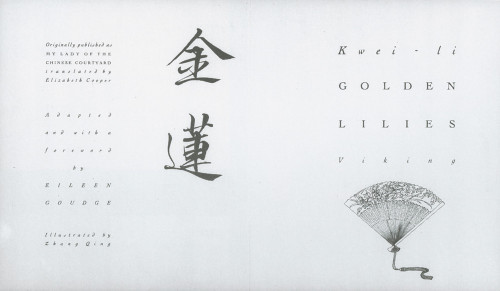 Originally published as
MY LADY OF THE
CHINESE COURTYARD
translated by
Elizabeth Cooper
Adapted
and with a
foreword
by
EILEEN
GOUDGE
Illustrated by
Zhang Qing
金
蓮
Kwei-li
GOLDEN
LILIES
Viking